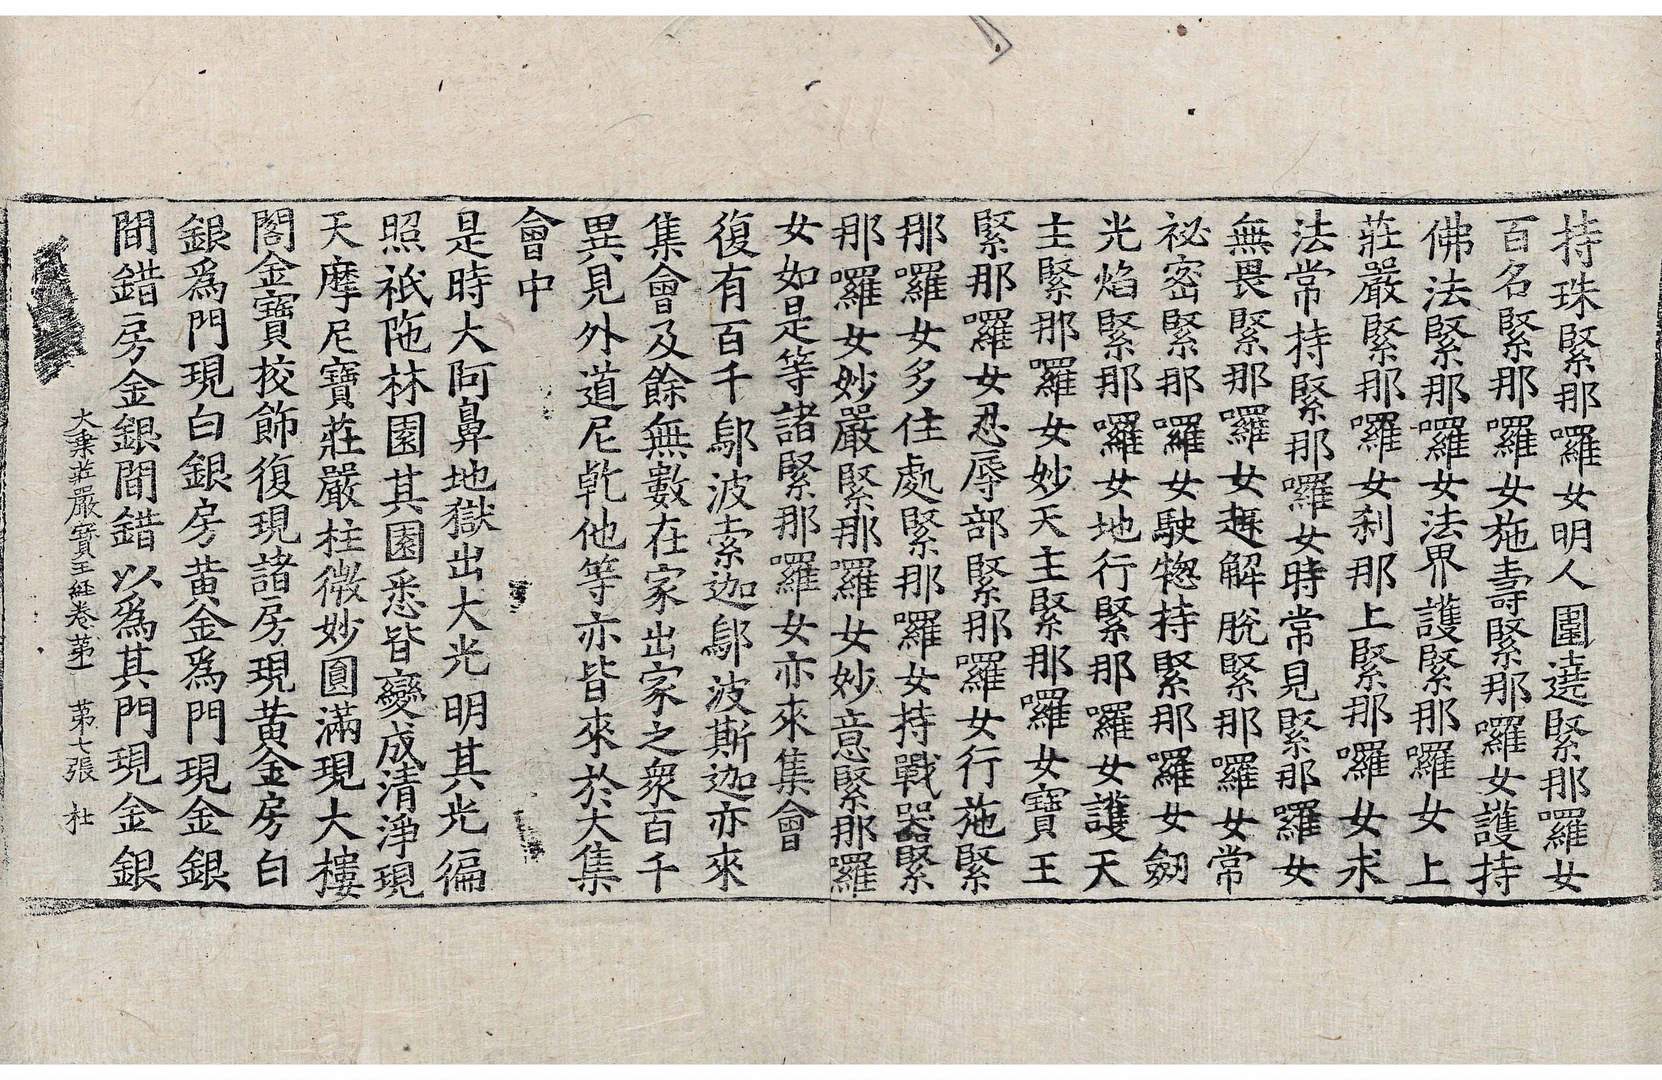 持珠緊那囉女明人圍遶緊那囉女
百名緊那囉女施壽緊那囉女護持
佛法緊那囉女法界護緊那囉女上
莊嚴緊那囉女剎那上緊那囉女求
法常持緊那囉女時常見緊那囉女
無畏緊那囉女趣解脫緊那囉女常
祕密緊那囉女駛揔持緊那囉女劒
光焰緊那囉女地行緊那囉女護天
主緊那囉女妙天主緊那囉女寶王
緊那囉女忍辱部緊那囉女行施緊
那囉女多住處緊那囉女持戰器緊
那囉女妙嚴緊那囉女妙意緊那囉
女如是等諸緊那囉女亦來集會
復有百千鄔波索迦鄔波斯迦亦來
集會及餘無數在家出家之衆百千
異見外道尼乹他等亦皆來於大集
會中
是時大阿鼻地獄出大光明其光徧
照祇陁林園其園悉皆變成清淨現
天摩尼寶莊嚴柱微妙圓滿現大樓
閣金寶挍飾復現諸房現黃金房白
銀爲門現白銀房黃金爲門現金銀
間錯房金銀間錯以爲其門現金銀
大乗莊嚴寶王経卷第一 第七張 杜